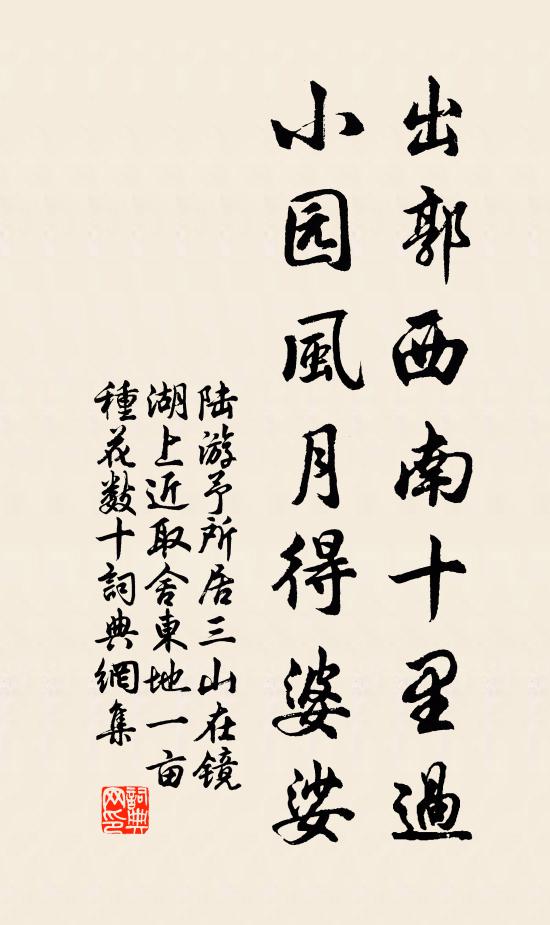 出郭西南十里過
小园風月得婆娑
陆游予所居三山在镜
湖上近取舍東地一亩
種花数十詞典網集
詞典网印